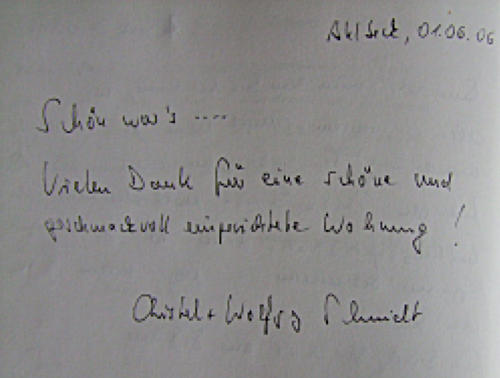 Ahlbeck, 01.06.06
Schön war's ....
Vielen Dank für eine schöne und
geschmackvoll eingerichtete Wohnung!
Christel + Wolfg g Schmidt